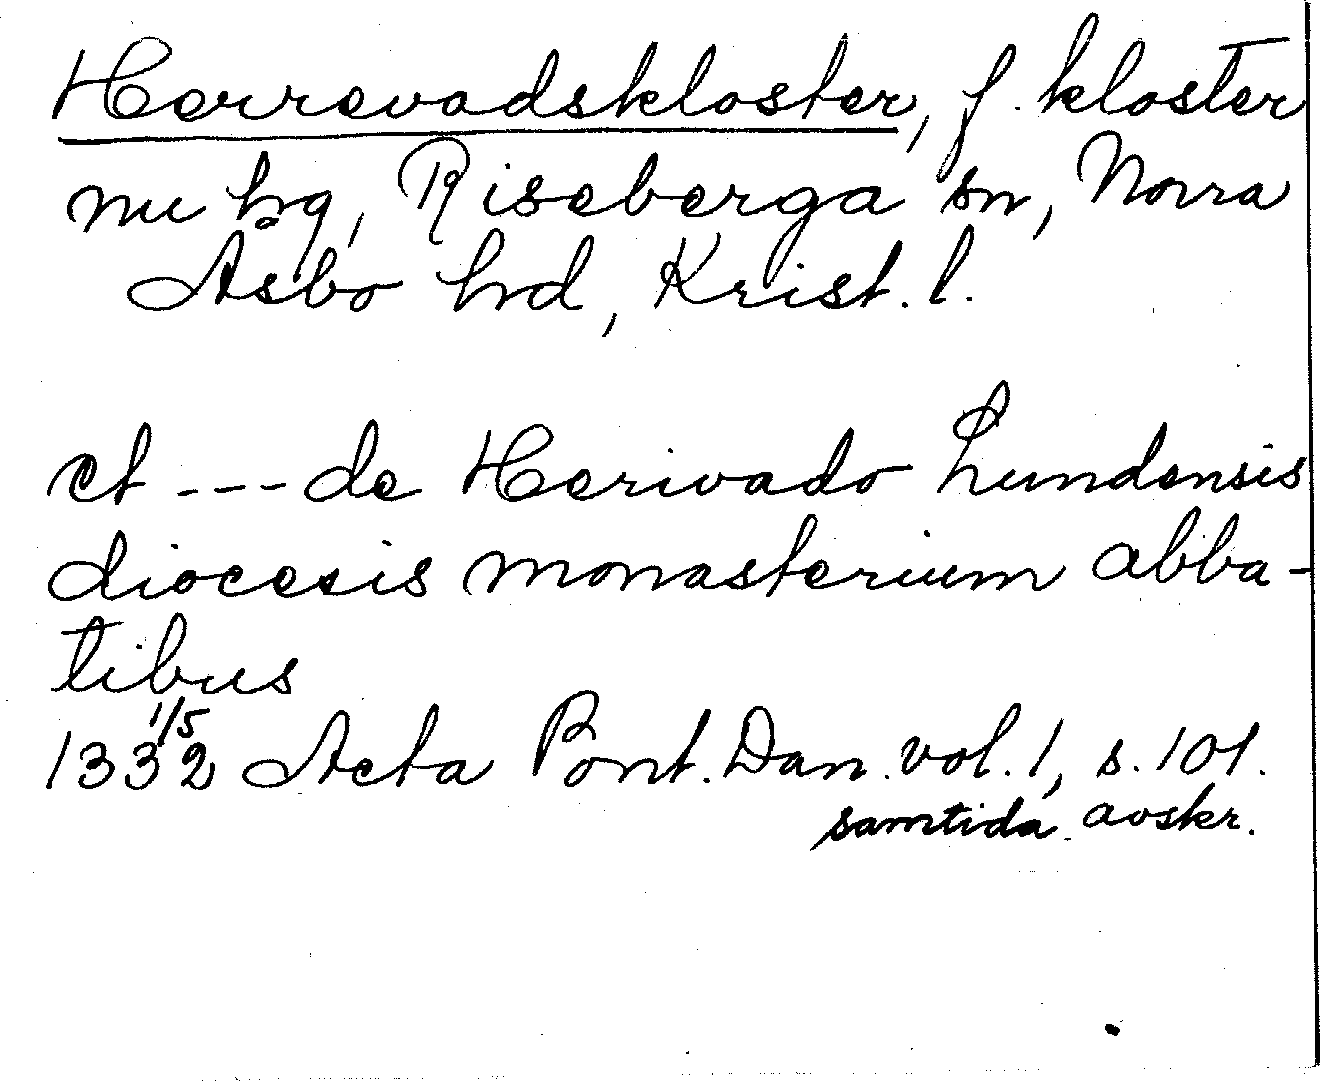 Herrevadskloster, f. kloster
nu hg, Riseberga sn, Norra
Asbo hrd, Krist. l.
et --- de Herivado Lundensis
diocesis monasterium abba-
tibus
1332 1/5 Acta Pont. Dan. vol. 1, s. 101.
samtida avskr.